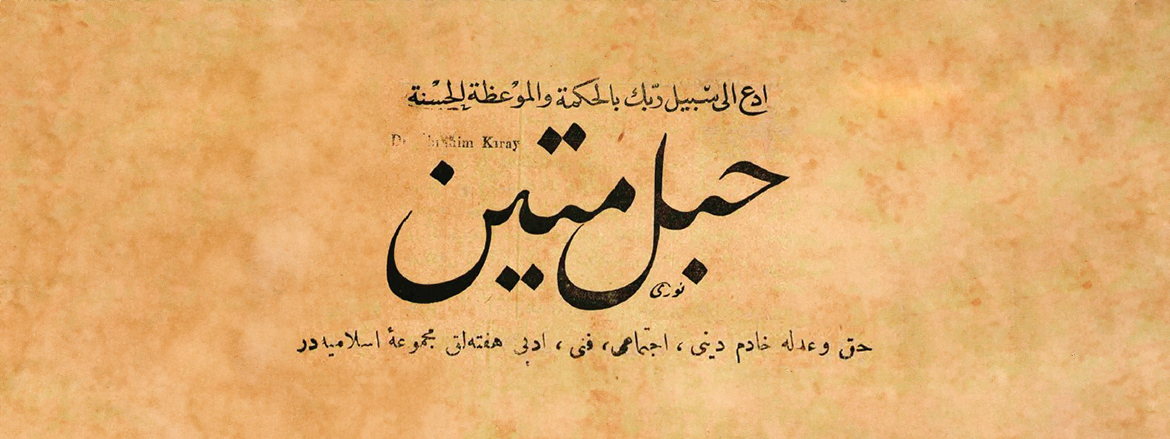 ادع الى سبيل ربّك بالحكمة والموْعظة الحسنة
Kıray
حبل متين
نوری
حق و عدله خادم دینی ، اجتماعی ، فنی ، ادبی هفته‌لق مجموعهٔ اسلامیه در